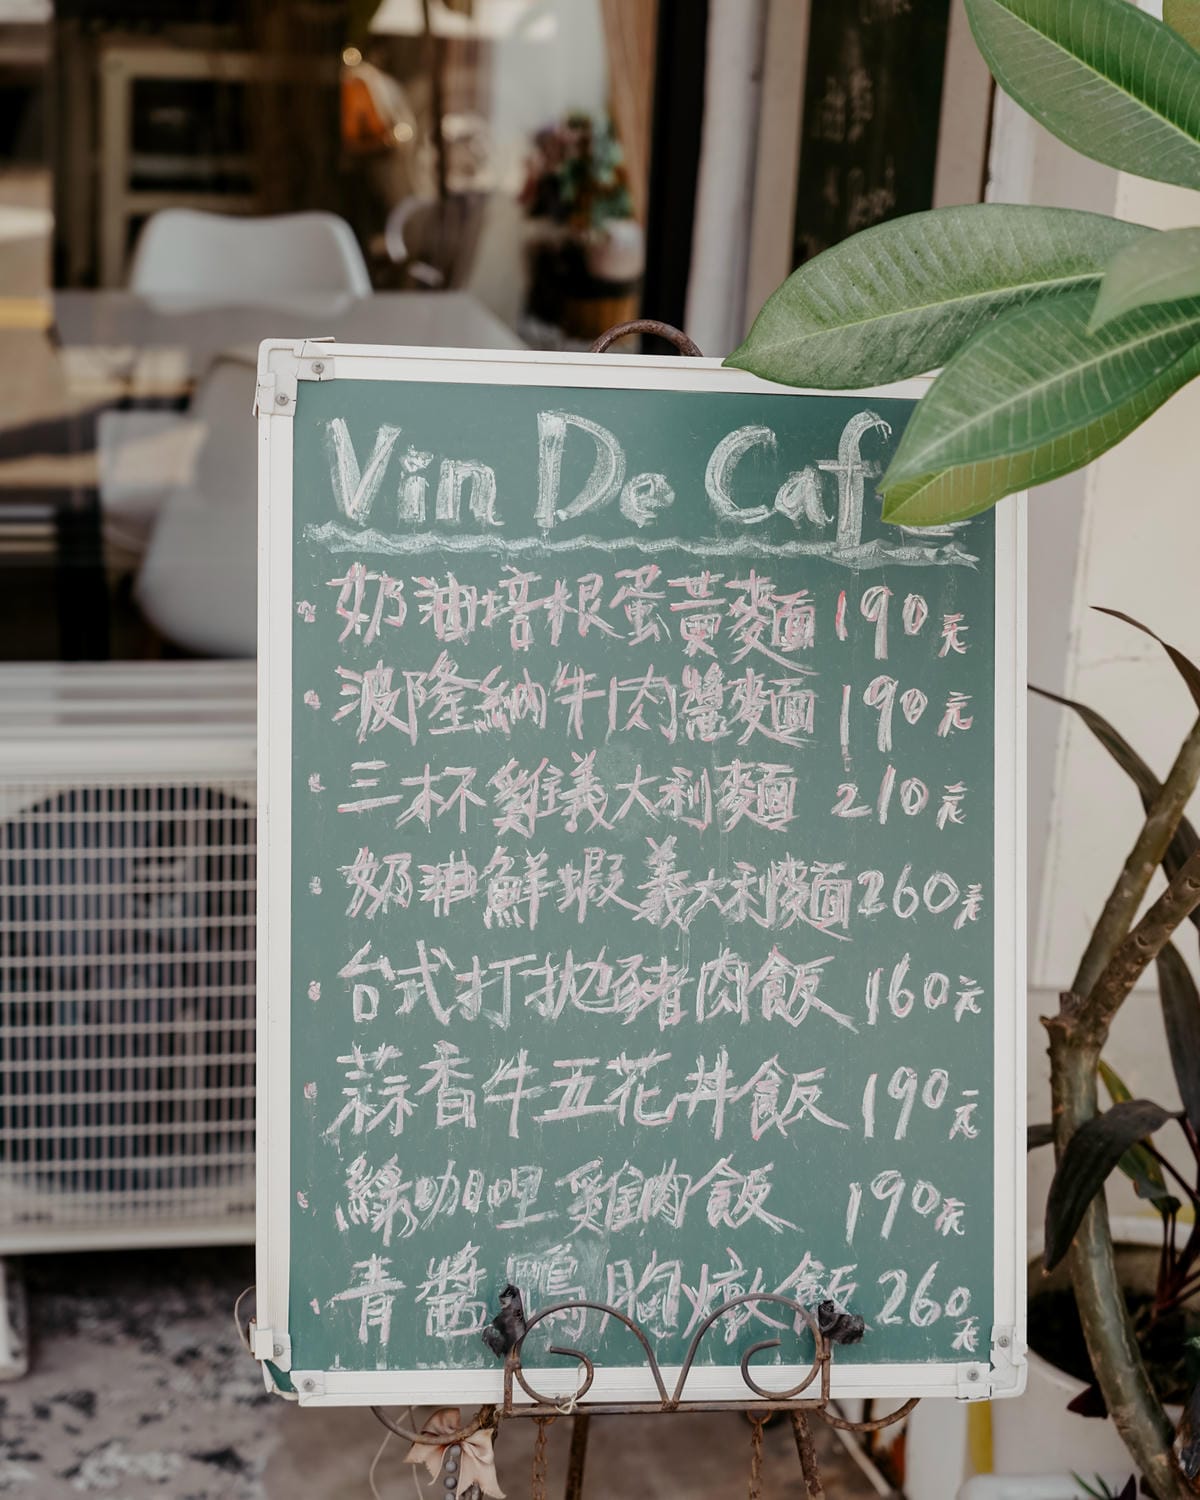 Vin De Caf
・奶油培根蛋黃麵 190元
・波隆納牛肉醬麵 190元
・三杯雞義大利麵 210元
・奶油鮮蝦義大利麵 260元
・台式打拋豬肉飯 160元
・蒜香牛五花丼飯 190元
・綠咖哩雞肉飯 190元
・青醬鴨胸燉飯 260元